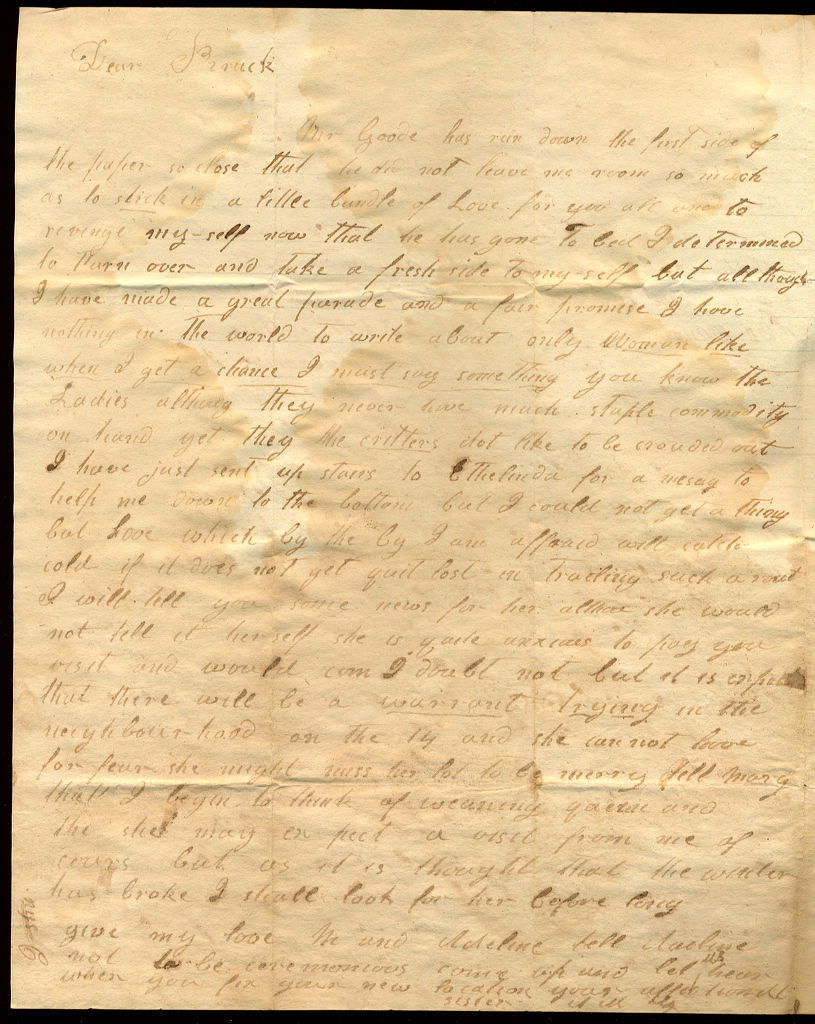 Dear Bruck
Mr Goode has run down the first side of
the paper so close that he did not leave me room so much
as to stick in a little bundle of Love for you all and to
revinge my-self now that he has gone To bed I determined
to Turn over and take a fresh side to my-self but all though
I have made a great parade and a fair promise I have
nothing in the world to write about only Woman like
when I get a chance I must say something you know the
Ladies althoug they never have much staple commodity
on hand yet they the critters dot like to be crouded out
I have just sent up stairs to Ethelinda for a mesag to
help me down to the bottom but I could not get a thing
but Love which by the by I am affraid will catch
cold if it does not get quit lost in traciling such a rout
I will tell you some news for her altho she would
not tell it her self she is quite anxious to pay you
visit and would com I doubt not but it is
that there will be a warrant Trying in the
neighbour hood on the 14 and she can not leave
for fear she might miss her lot to be merry Tell Mary
that I begin to think of weaning and
the she may expect a visit from me of
cours but as it is thought that the winter
has broke I shall look for her before long
give my love and Adeline tell
not to be ceremonious come up and let us hear
when you fix your new location your
sister